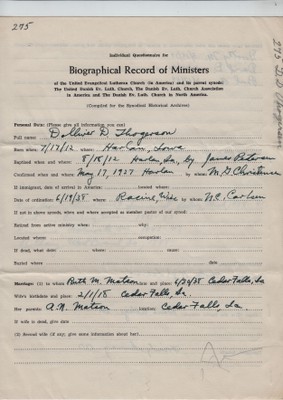 295
Individual Questionnaire for
Biographical Record of Ministers
of the United Evangelical Lutheran Church (in America) and its parent synods:
The United Danish Ev. Luth. Church, The Danish Ev. Luth. Church Association
in America and The Danish Ev. Luth. Church in North America.
(Compiled for the Synodical Historical Archives)
Personal Data: (Please give all information you can)
Full name: Dollivei D. Thogerson
Born when: 7/17/12 where: Harlan, Iowa
Baptized when and where: 8/18/12 Harlan, Ia, by James Petersen
Confirmed when and where May 17, 1927 Harlan by whom: M. G. Christensen
If immigrant, date of arrival in America: hailed where:
Date of ordination: 6/19/38 where: Racine, Wisc by whom: N.C. Carlsen
If not in above synods, when and where accepted as member pastor of our synod:
Retired from active ministry when: why:
Located where: occupation:
If dead, what date: where: cause:
Buried where date
Marriage: (1) to whom Ruth M. Matson date and place: 6/20/38 Cedar Falls, Ia
Wife's birthdate and place: 2/1/18 Cedar Falls, Ia.
Her parents: A.N. Matson location: Cedar Falls, Ia.
If wife is dead, give date
(2) Second wife (if any; give same information about her)
295 D. D. Thogerson